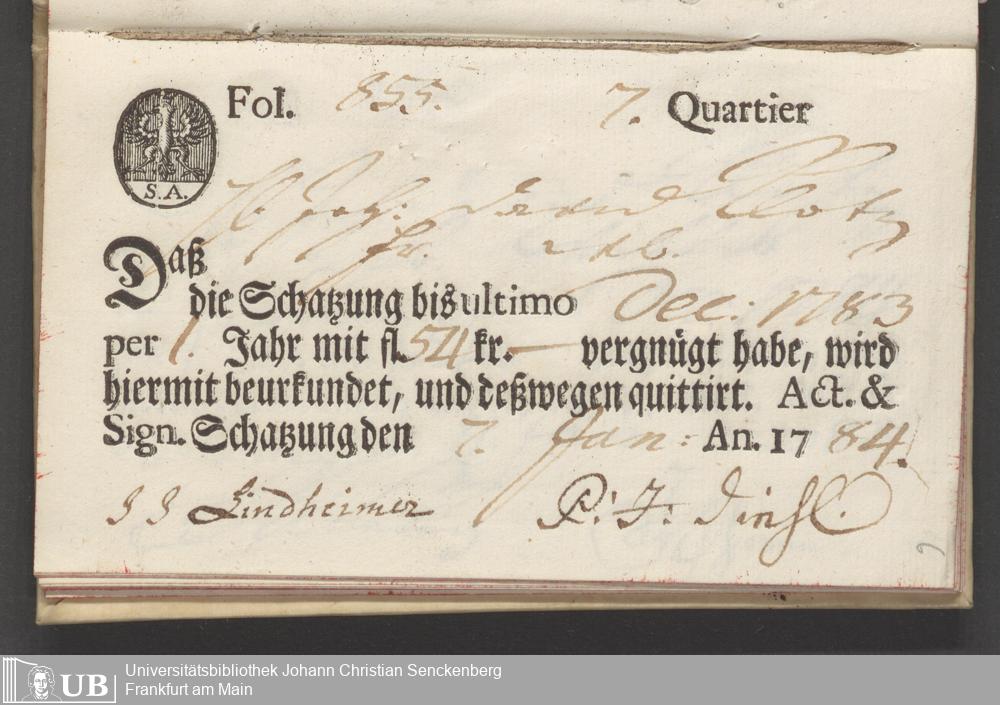 Fol. 855. 7. Quartier
S.A.
Joh: David Clotz
Daß
die Schatzung bis ultimo Dec: 1783
per 1. Jahr mit fl. 54 kr. — vergnügt habe, wird
hiermit beurkundet, und deßwegen quittirt. Act. &
Sign. Schatzung den 7. Jan: An. 17 84.
J J Lindheimer P: F:
Universitätsbibliothek Johann Christian Senckenberg
Frankfurt am Main
UB